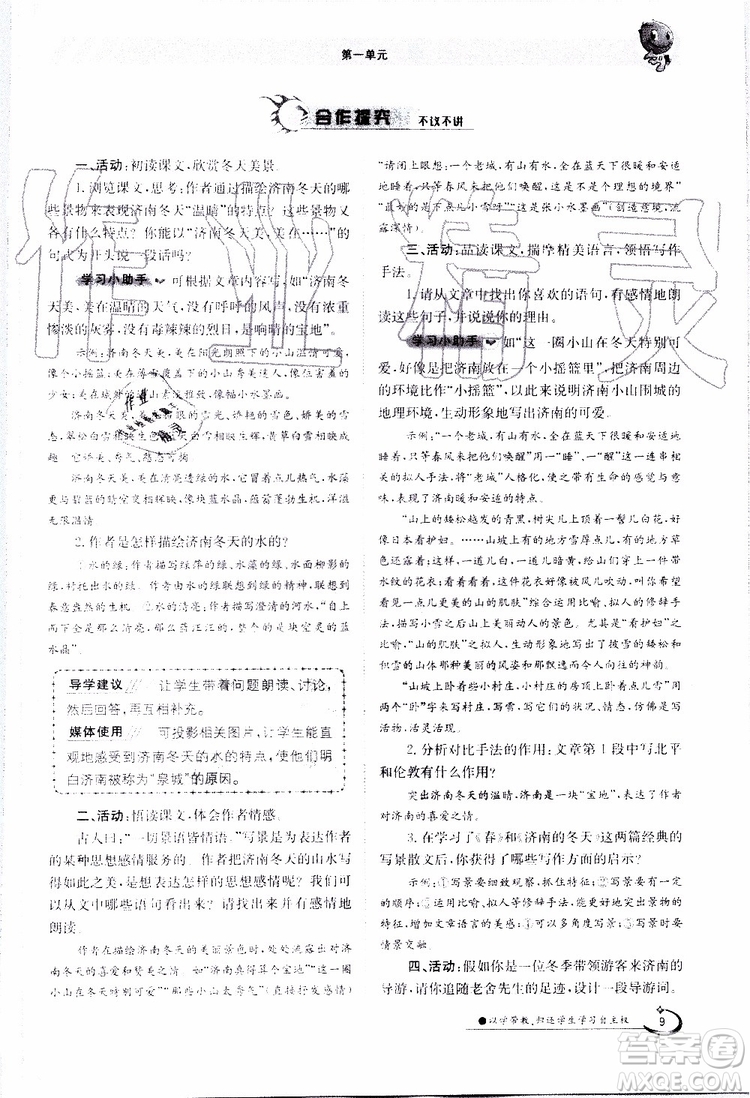 第一单元
合作探究 不议不讲
一、活动：初读课文，欣赏冬天美景。
1. 浏览课文，思考：作者通过描绘济南冬天的哪
些景物来表现济南冬天“温晴”的特点？这些景物又
各有什么特点？你能以“济南冬天美，美在……”的
句式为开头说一段话吗？
学习小助手 可根据文章内容写，如“济南冬
天美，美在温晴的天气，没有呼呼的风声，没有浓重
惨淡的灰雾，没有毒辣辣的烈日，是响晴的宝地”。
示例：济南冬天美，美在阳光朗照下的小山温情可
爱，美在薄雪覆盖下的小山秀美迷人。
济南冬天美，美在
的雪光，娇艳的雪色，娇美的雪
态，
雪白
黄草和雪色相映生
济南冬天美，美在
透绿的水，水面点儿热气，水藻
更绿，与碧蓝的晴空交相辉映，像块蓝水晶，蕴蓄生机，洋溢
无限温情。
2. 作者是怎样描绘济南冬天的水的？
水的绿：作者描写绿萍的绿、水藻的绿、水面柳影的
绿，来表现水的绿。作者由水的绿联想到春意，联想到
春意盎然的生机。水的清亮：作者描写澄清的河水，“自上
而下全是那么清亮，全是那么蓝汪汪的，整个的是块空灵的蓝
水晶”。
导学建议 让学生带着问题朗读、讨论，
然后回答，再互相补充。
媒体使用 可投影相关图片，让学生能直
观地感受到济南冬天的水的特点，使他们明
白济南被称为“泉城”的原因。
二、活动：悟读课文，体会作者情感。
古人曰：“一切景语皆情语。”写景是为表达作者
的某种思想感情服务的。作者把济南冬天的山水写得
如此之美，是想表达怎样的思想感情呢？我们可
以从文中哪些语句看出来？请找出来并有感情地
朗读。
作者在描绘济南冬天的美丽景色时，处处流露出对济
南冬天的喜爱和赞美之情。如“济南真得算个宝地”“这一圈
小山在冬天特别可爱”“那些小山太秀气”（直接抒发感情）
“请闭上眼想：一个老城，有山有水，全在蓝天下很暖和安适
地睡着，只等春风来把他们唤醒，这是不是个理想的境界”
“最妙的是下点儿小雪呀”“这是张小水墨画”（创造意境，流
露深情）
三、活动：品读课文，揣摩精美语言，领悟写作
手法。
1. 请从文章中找出你喜欢的语句，有感情地朗
读这些句子，并说说你的理由。
学习小助手 如“这一圈小山在冬天特别可
爱，好像是把济南放在一个小摇篮里”，把济南周边
的环境比作“小摇篮”，以此来说明济南小山围城的
地理环境，生动形象地写出济南的可爱。
示例：“一个老城，有山有水，全在蓝天下很暖和安适地
睡着，只等春风来把他们唤醒”，用“暖和”“睡”“唤醒”这一连串称
美的拟人手法，将“老城”人格化，给人带来有生命的感觉与
联想，表现了济南暖和安适的特点。
“山上的矮松越发的青黑，树尖儿上顶着一髻儿白花，好
像日本看护妇”“山坡上，有的地方雪厚点，有的地方草
色还露着；这样，一道儿白，一道儿暗黄，给山们穿上一件带
水纹的花衣；看着看着，这件花衣好像被风儿吹动，叫你希
望看见一点更美的山的肌肤”综合运用比喻、拟人的修辞手
法，描写雪后济南小山的秀丽景色。“看护妇”以人写松，“花
衣”“肌肤”之喻兼以拟人，生动形象地写出了披雪的矮松和
积雪的山体那种美丽的风姿和令人陶醉的娇美情态。
“山坡上卧着些小村庄，小村庄的房顶上卧着点雪”，用
两个“卧”字来写村庄，写雪，写得它们的形状、情态无一不
活物，活灵活现。
2. 分析对比手法的作用：文章第1段中写北平
和伦敦有什么作用？
突出济南冬天的温晴，济南是一块“宝地”，表达了作者
对济南的喜爱之情。
3. 在学习了《春》和《济南的冬天》这两篇经典的
写景散文后，你获得了哪些写作方面的启示？
示例：①写景要细致观察，抓住特征；②写景要有一定
的顺序；③写景要运用比喻、拟人等修辞手法，突出景物的特
征，增加文章语言的美感；④可以多角度写景；⑤写景时要
情景交融。
四、活动：假如你是一位冬季带领游客来济南的
导游，请你追随老舍先生的足迹，设计一段导游词。
●以学带教，归还学生学习自主权
9
作业精灵
作业
精灵
答案圈
MXQE.COM